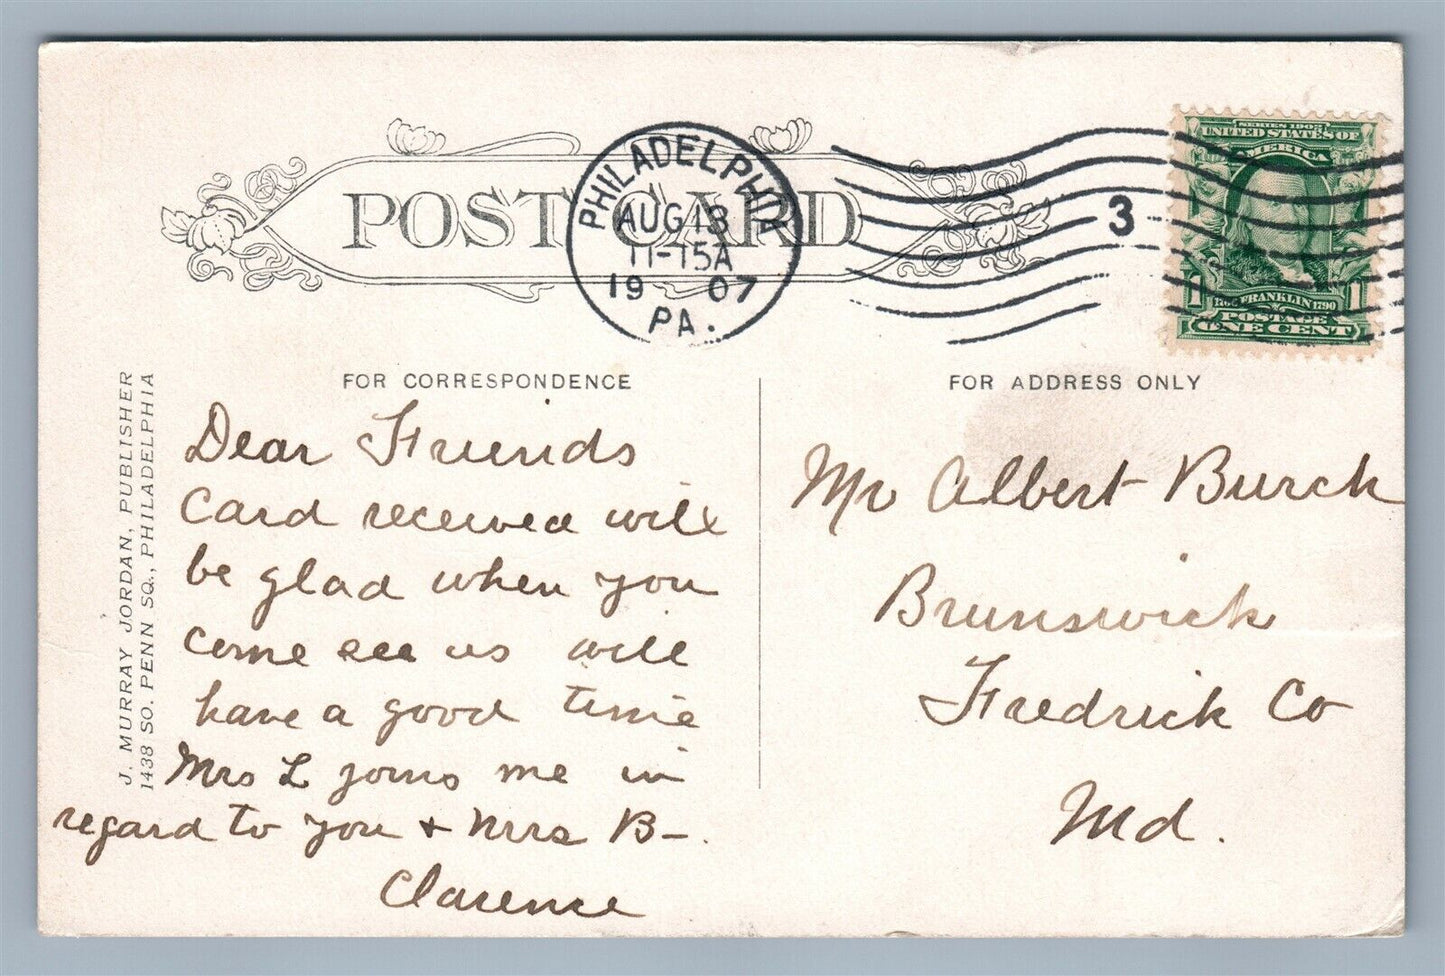 POST CARD
PHILADELPHIA
AUG 13
11-15A
1907
PA.
3
SERIES 1902
UNITED STATES OF
AMERICA
1 1
1706 FRANKLIN 1790
POSTAGE
ONE CENT
J. MURRAY JORDAN, PUBLISHER
1438 SO. PENN SQ., PHILADELPHIA
FOR CORRESPONDENCE
Dear Friends
Card received will
be glad when you
come see us will
have a good time
Mrs L joins me in
regard to you + Mrs B-.
Clarence
FOR ADDRESS ONLY
Mr Albert Burck
Brunswick
Fredrick Co
Md.